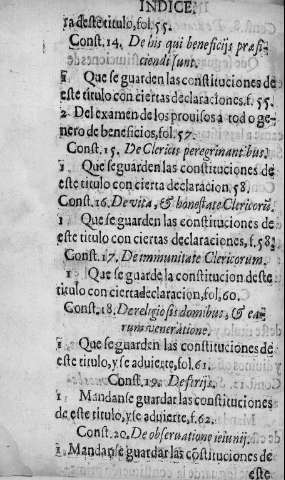 INDICE.
ra deste titulo, fol. 55.
Const. 14. De his qui beneficijs præfi-
ciendi sunt.
1 Que se guarden las constituciones de
este titulo con ciertas declaraciones, f. 55.
2 Del examen de los prouisos a tod o ge-
nero de beneficios, fol. 57.
Const. 15. De Clericis peregrinantibus.
1 Que se guarden las constituciones de
este titulo con cierta declaracion. 58.
Const. 16. De vita, & honestate Clericorũ.
1 Que se guarden las constituciones de
este titulo con ciertas declaraciones, f. 58.
Const. 17. De immunitate Clericorum.
1 Que se guarde la constitucion deste
titulo con cierta declaracion, fol. 60.
Const. 18. De religiosis domibus, & ea-
rum veneratione.
1 Que se guarden las constituciones de
este titulo, y se aduierte, fol. 61.
Const. 19. De ferijs.
1 Mandanse guardar las constituciones
de este titulo, y se aduierte, f. 62.
Const. 20. De obseruatione ieiunij.
1 Mandanse guardar las cõstituciones de
este